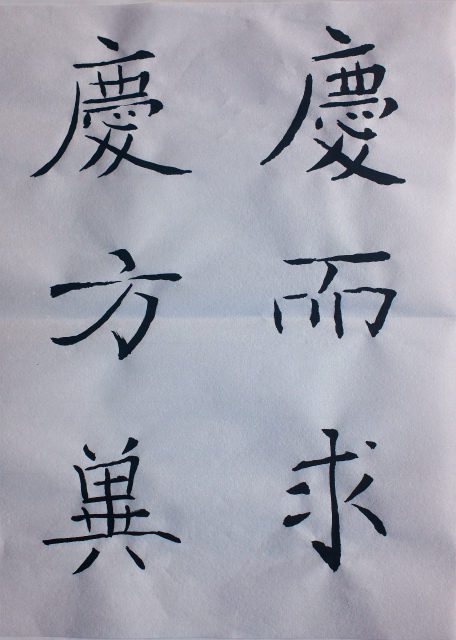 慶而求
慶方